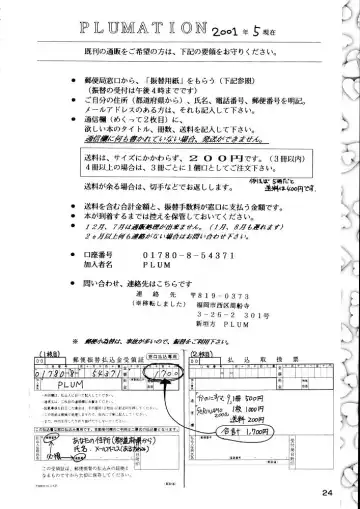 PLUMATION 2001年5現在
既刊の通販をご希望の方は、下記の要領をお守りください。
● 郵便局窓口から、「振替用紙」をもらう(下記参照)
(振替の受付は午後4時までです)
● ご自分の住所(都道府県から)、氏名、電話番号、郵便番号を明記。
メールアドレスのある方は、それも記入して下さい。
● 通信欄(めくって2枚目)に、
欲しい本のタイトル、冊数、送料を記入して下さい。
通信欄に何も書かれていない場合、発送ができません。
送料は、サイズにかかわらず、200円です。(3冊以内)
4冊以上の場合は、3冊ごとに1個口としてご注文下さい。
送料が余る場合は、切手などでお返しします。
● 送料を含む合計金額と、振替手数料が窓口に支払う金額です。
● 本が到着するまでは控えを保管しておいてください。
● 12月、7月は通販処理が出来ません。(1月、8月も遅れます)
2ヶ月以上何も連絡がない場合はお問い合わせ下さい。
● 口座番号 01780-8-54371
加入者名 PLUM
● 問い合わせ、連絡先はこちら
連絡先 〒819-0373
(※移転しました) 福岡市西区周船寺
3-26-2 301号
新垣方 PLUM
※ 郵便小為替は、事故が多いので、振替をご利用下さい。
(1枚目)
郵便振替払込金受領証
窓口払込専用
(2枚目)
払込取扱票
01780 8 54371
1700
PLUM
1冊 500円
1冊 1000円
送料 200円
合計 1,700円
あなたの住所(都道府県から)
24